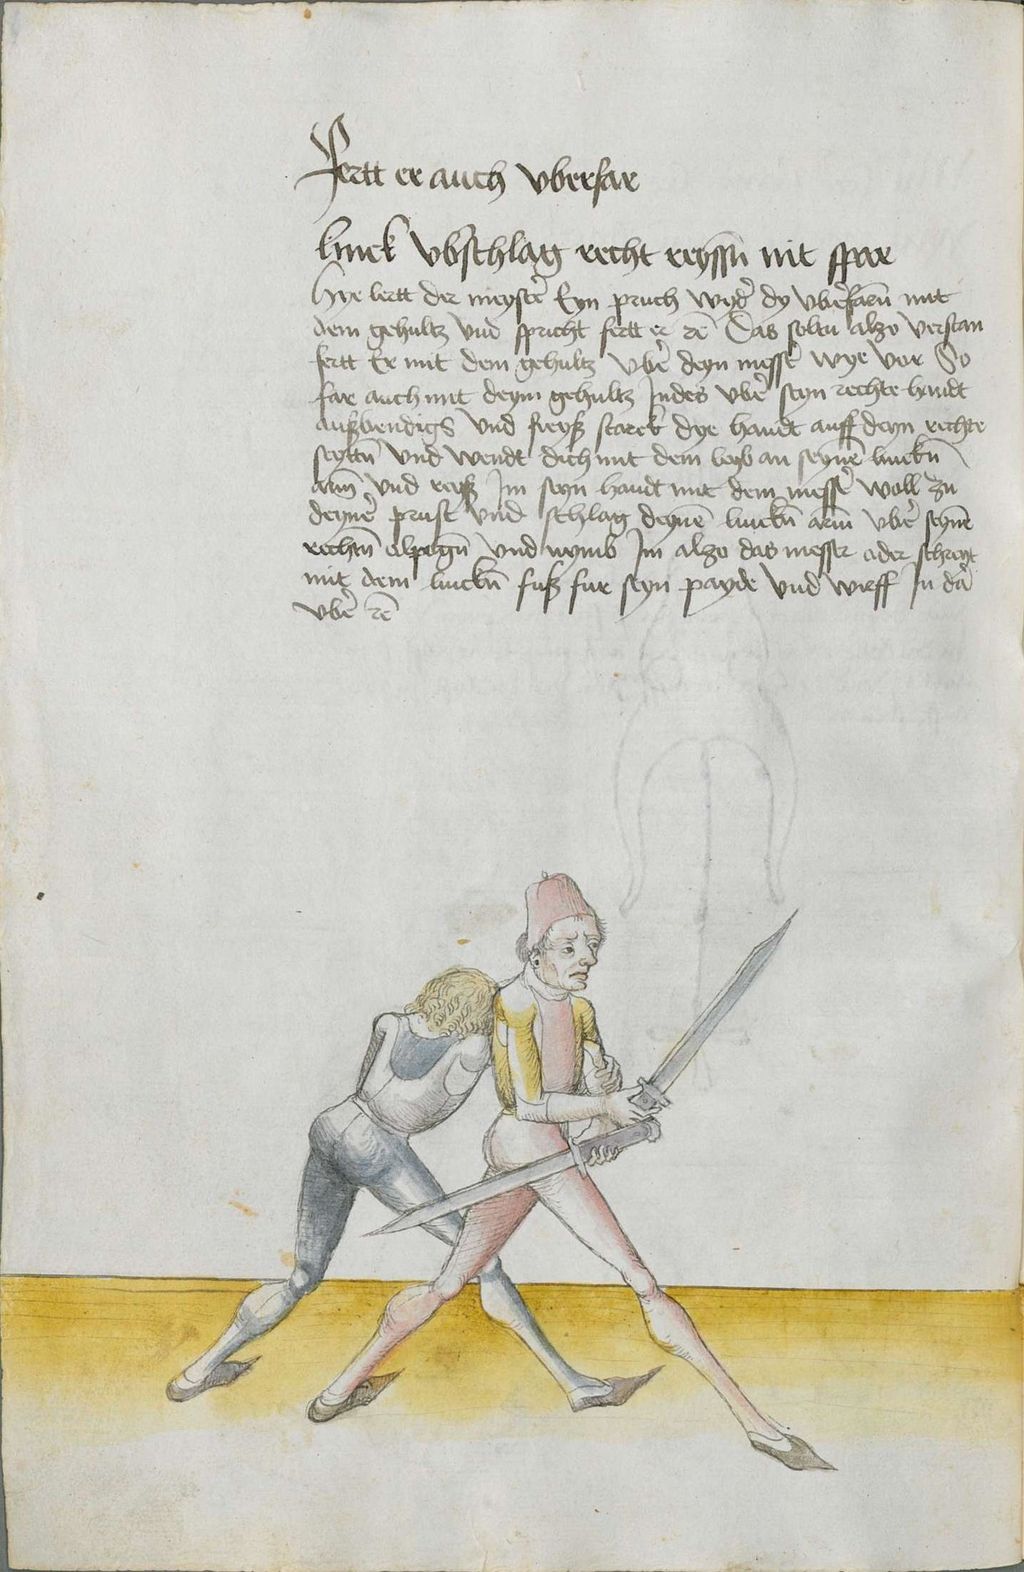 Fertt er auch vberfar
linck vbschlag recht reyssñ nit spar
Hye lertt der meysteꝛ Eyn pruch wydꝰ dy vbeꝛfarñ mit
dem gehultz vnd spricht fertt er ꝛc̃ Das soltu alzo verstan
fertt Er mit dem gehultz vbeꝛ deyn messeꝛ wye vor So
far auch mit deym gehultz Indes vbeꝛ seyn rechte handt
außbendigs vnd freyß starck dye handt auff deyn rechte
seyttñ vnd wendt dich mit dem leyb an seynẽ linckñ
arm vnd reyß Im seyn handt mit dem messeꝛ woll zu
deyneꝛ prust vnd schlag deynẽ linckñ arm vbeꝛ seynẽ
rechtñ elpogñ vnd nymb Im alzo das messer ader schreyt
mit dem linckñ fuß fur seyn payde vnd wirff In dã
vbeꝛ ꝛc̃